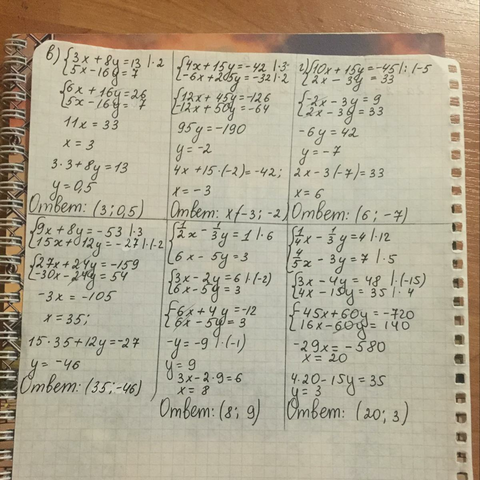 в) {3x + 8y = 13 |·2
{5x - 16y = 7
{6x + 16y = 26
{5x - 16y = 7
11x = 33
x = 3
3·3 + 8y = 13
y = 0,5
Ответ: (3; 0,5)
{4x + 15y = -42 |·3
{-6x + 205y = -32 |·2
{12x + 45y = -126
{-12x + 50y = -64
95y = -190
y = -2
4x + 15·(-2) = -42;
x = -3
Ответ: x(-3; -2)
г) {10x + 15y = -45 |:(-5
{2x - 3y = 33
{-2x - 3y = 9
{2x - 3y = 33
-6y = 42
y = -7
2x - 3(-7) = 33
x = 6
Ответ: (6; -7)
{9x + 8y = -53 |·3
{15x + 12y = -27 |·(-2
{27x + 24y = -159
{-30x - 24y = 54
-3x = -105
x = 35;
15·35 + 12y = -27
y = -46
Ответ: (35; -46)
{1/2x - 1/3y = 1 |·6
{6x - 5y = 3
{3x - 2y = 6 |·(-2)
{6x - 5y = 3
{-6x + 4y = -12
{6x - 5y = 3
-y = -9 |·(-1)
y = 9
3x - 2·9 = 6
x = 8
Ответ: (8; 9)
{1/4x - 1/3y = 4 |·12
{4/5x - 3y = 7 |·5
{3x - 4y = 48 |·(-15)
{4x - 15y = 35 |·4
{-45x + 60y = -720
{16x - 60y = 140
-29x = -580
x = 20
4·20 - 15y = 35
y = 3
Ответ: (20; 3)